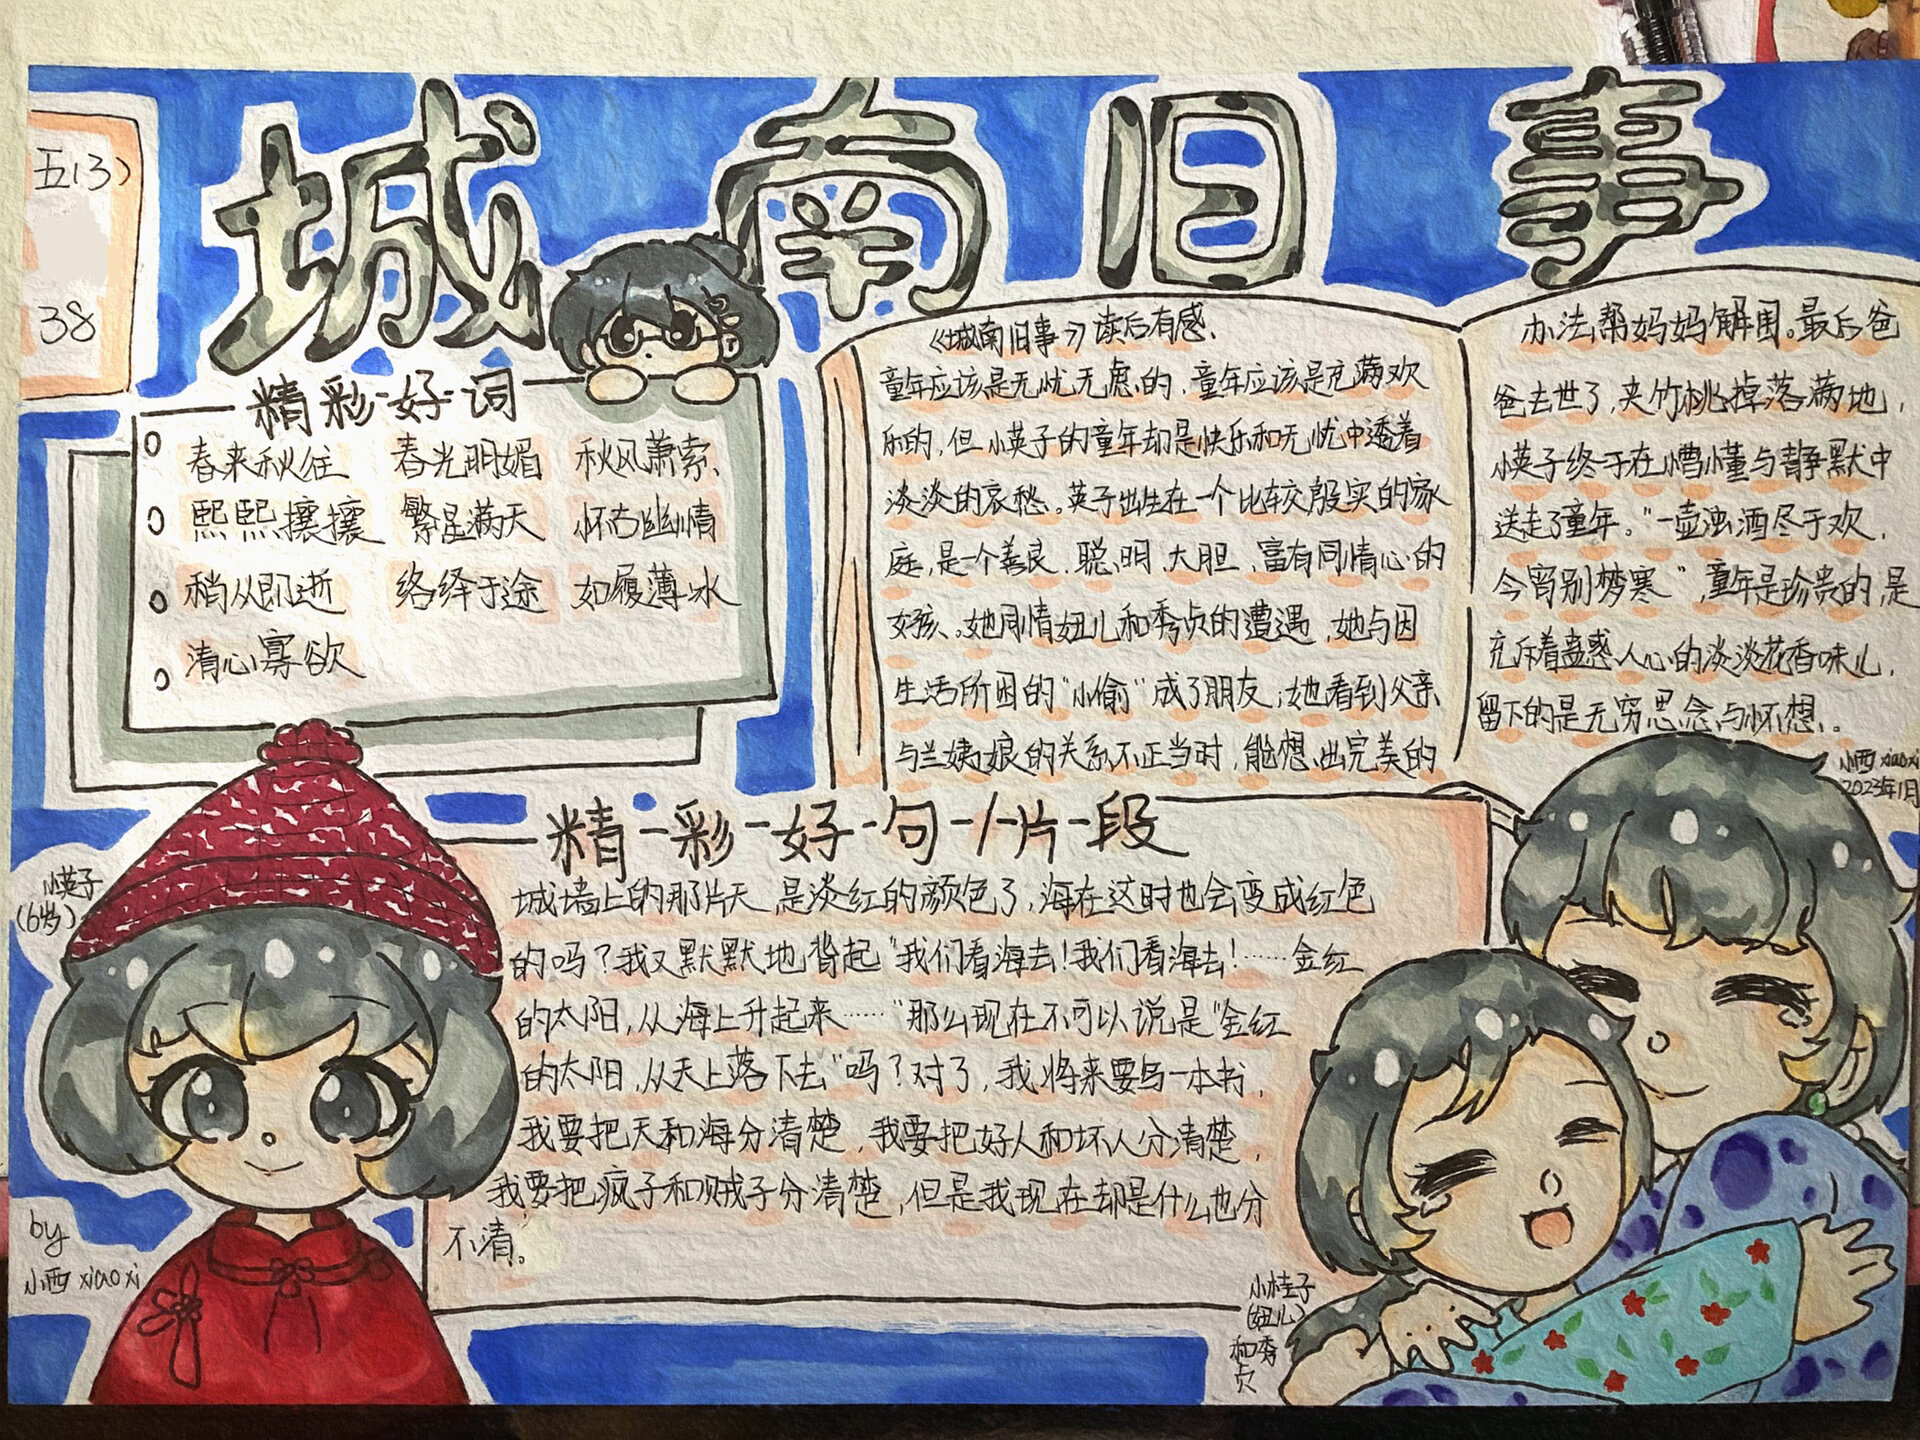 城南旧事
五(3)
38
精彩好词
春来秋往 春光明媚 秋风萧索
熙熙攘攘 繁星满天 怀古幽情
稍从即逝 络绎于途 如履薄冰
清心寡欲
《城南旧事》读后有感
童年应该是无忧无虑的，童年应该是充满欢
乐的，但小英子的童年却是快乐和无忧中透着
淡淡的哀愁。英子出生在一个比较殷实的家
庭，是一个善良，聪明，大胆，富有同情心的
女孩、。她同情妞儿和秀贞的遭遇，她与因
生活所困的"小偷"成了朋友；她看到父亲
与兰姨娘的关系不正当时，能想出完美的
办法帮妈妈解围。最后爸
爸去世了，夹竹桃掉落满地，
小英子终于在懵懂与静默中
送走了童年。"一壶浊酒尽于欢，
今宵别梦寒"，童年是珍贵的，是
充斥着蛊惑人心的淡淡花香味儿，
留下的是无穷思念与怀想。
小西 xiaoxi
2023年1月
精-彩-好-句-/-片-段
城墙上的那片天，是淡红的颜色了，海在这时也会变成红色
的吗？我又默默地背起"我们看海去！我们看海去！……金红
的太阳，从海上升起来……"那么现在不可以说是"金红
的太阳，从天上落下去"吗？对了，我将来要写一本书，
我要把天和海分清楚，我要把好人和坏人分清楚，
我要把疯子和贼子分清楚，但是我现在却是什么也分
不清。
小英子
(6岁)
by
小西 xiaoxi
小桂子
(妞儿)
和秀
贞